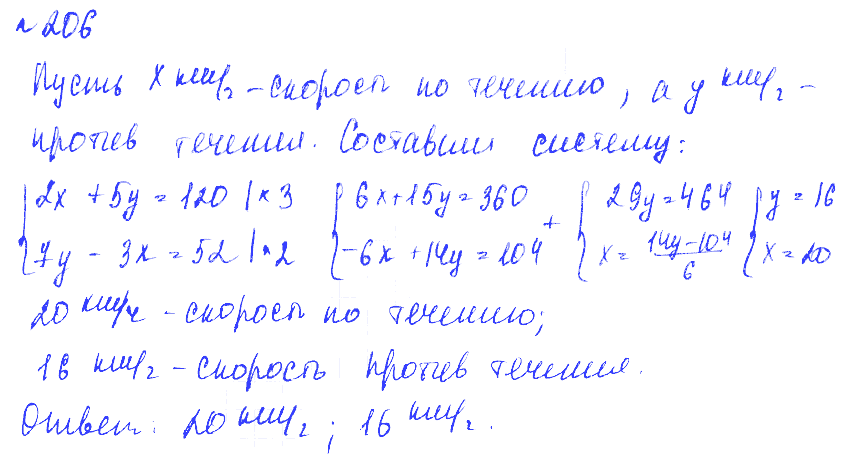 №206
Пусть x км/ч - скорость по течению, а y км/ч -
против течения. Составим систему:
{2x + 5y = 120 | × 3 {6x + 15y = 360 + {29y = 464 {y = 16
{7y - 3x = 52 | × 2 {-6x + 14y = 104 {x = (14y - 104)/6 {x = 20
20 км/ч - скорость по течению;
16 км/ч - скорость против течения.
Ответ: 20 км/ч; 16 км/ч.